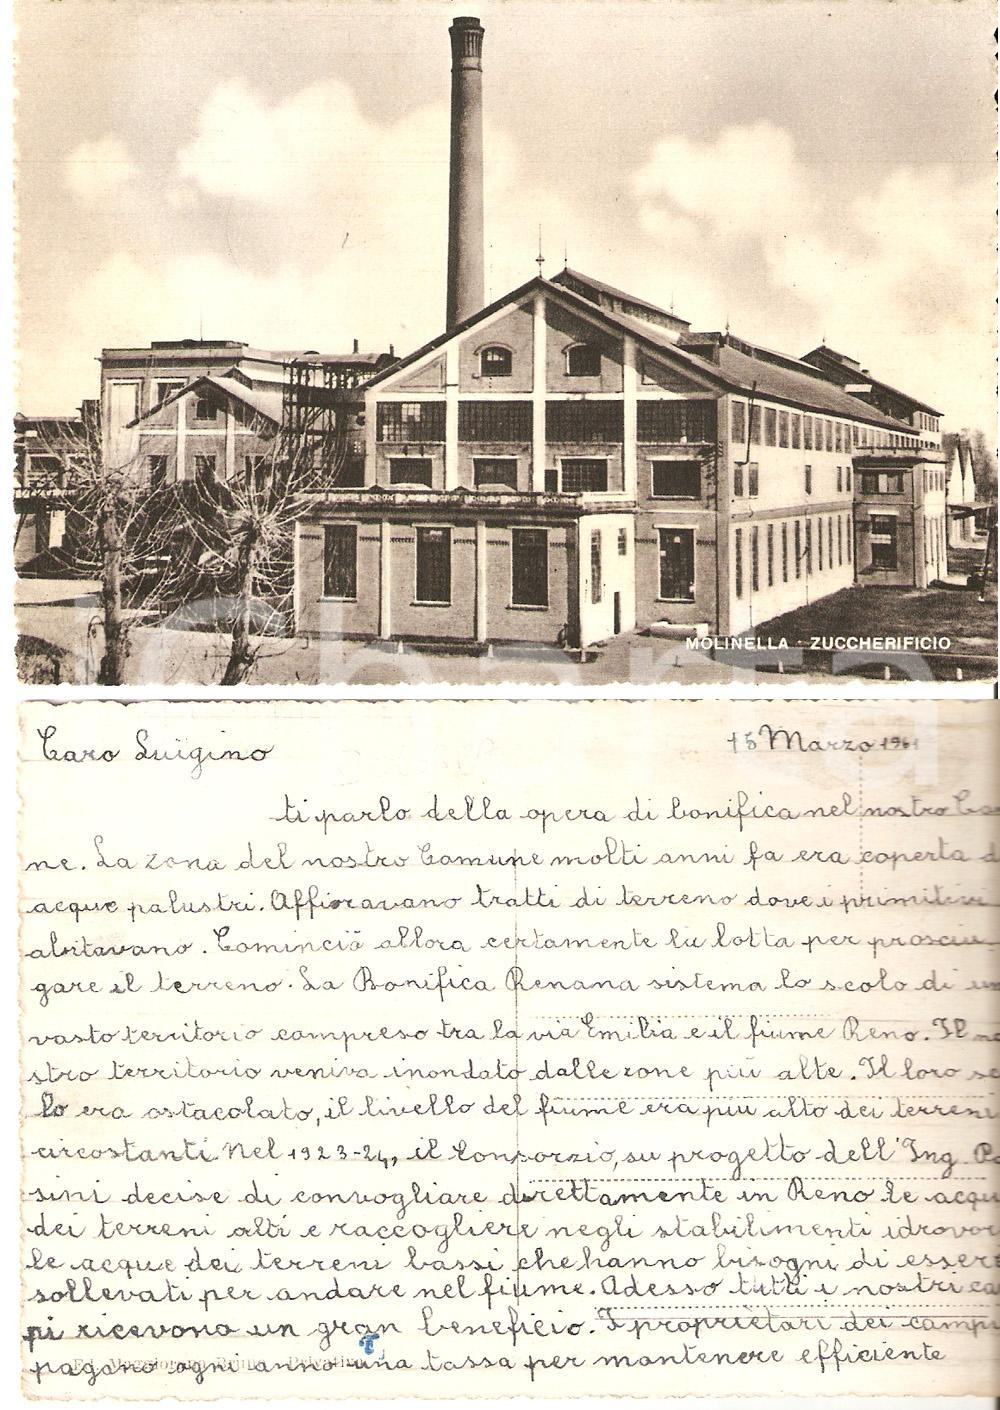 MOLINELLA - ZUCCHERIFICIO
Caro Luigino
15 Marzo 1961
ti parlo della opera di bonifica nel nostro Co
ne. La zona del nostro Comune molti anni fa era coperta d
acque palustri. Affioravano tratti di terreno dove i primitivi
abitavano. Cominciò allora certamente la lotta per prosciu
gare il terreno. La Bonifica Renana sistema lo scolo di un
vasto territorio compreso tra la via Emilia e il fiume Reno. Il no
stro territorio veniva inondato dalle zone più alte. Il loro sc
lo era ostacolato, il livello del fiume era più alto dei terreni
circostanti. Nel 1923-24, il Consorzio, su progetto dell'Ing. Pa
sini decise di convogliare direttamente in Reno le acqu
dei terreni alti e raccogliere negli stabilimenti idrovor
le acque dei terreni bassi che hanno bisogni di esseri
sollevati per andare nel fiume. Adesso tutti i nostri ca
pi ricevono un gran beneficio. I proprietari dei campi
pagano ogni anno una tassa per mantenere efficiente